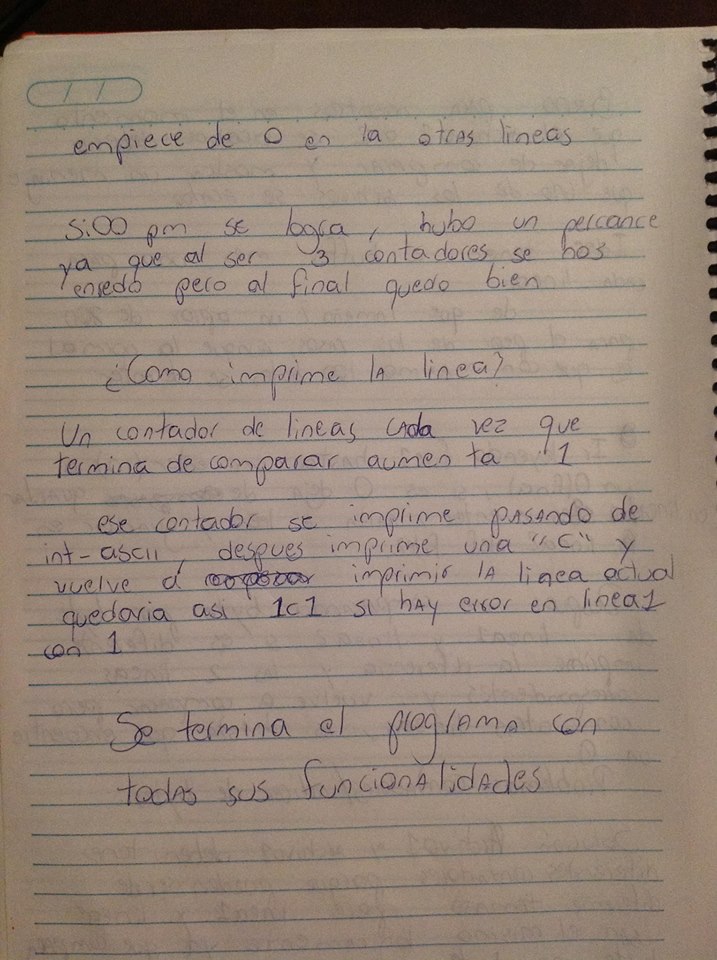 empiece de 0 en la otras lineas
5:00 pm se logra, hubo un percance
ya que al ser 3 contadores se nos
enredo pero al final quedo bien
¿Como imprime la linea?
Un contador de lineas cada vez que
termina de comparar aumenta 1
ese contador se imprime pasando de
int-ascii, despues imprime una "c" y
vuelve a imprimir la linea actual
quedaria asi 1c1 si hay error en linea1
con 1
Se termina el programa con
todas sus funcionalidades